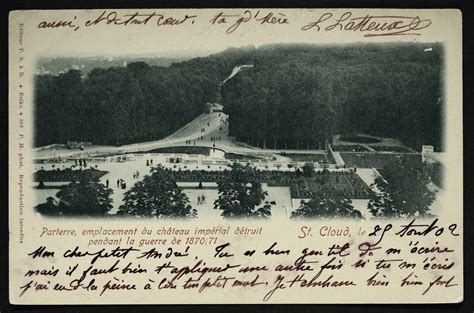 aussi, et de tout cœur, ta gd'mère L Latteux
Editeur P. S. à D. Erika 266 P. M. phot. Reproduction interdite
Parterre, emplacement du château impérial détruit
pendant la guerre de 1870/71
St. Cloud, le 25 Aout 02
Mon cher petit André! Tu es bien gentil de m'écrire
mais il faut bien t'appliquer une autre fois si tu m'écris
j'ai eu de la peine à lire ton petit mot. Je t'embrasse bien bien fort